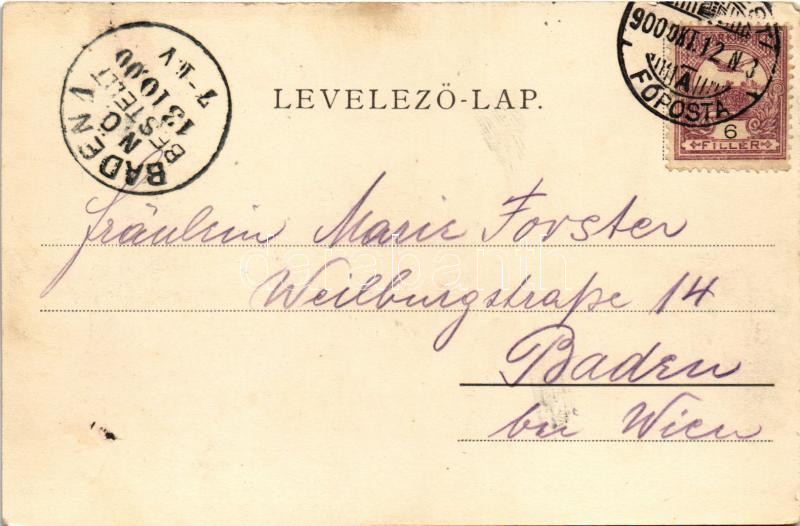 LEVELEZŐ-LAP.
900 OKT. 12 N 3
A
FŐPOSTA
6
FILLÉR
BADEN
N.Ö.
BESTELLT
13 10.00
7 - V
Fräulein Marie Forster
Weilburgstraße 14
Baden
bei Wien
darabanth